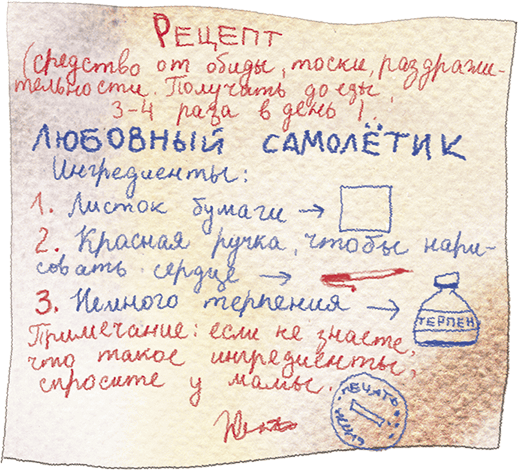 РЕЦЕПТ
(средство от обиды, тоски, раздражи-
тельности. Получать до еды
3-4 раза в день!..
ЛЮБОВНЫЙ САМОЛЁТИК
Ингредиенты:
1. Листок бумаги →
2. Красная ручка, чтобы нари-
совать сердце →
3. Немного терпения →
ТЕРПЕН
Примечание: если не знаете,
что такое ингредиенты,
спросите у мамы.
ПЕЧАТЬ